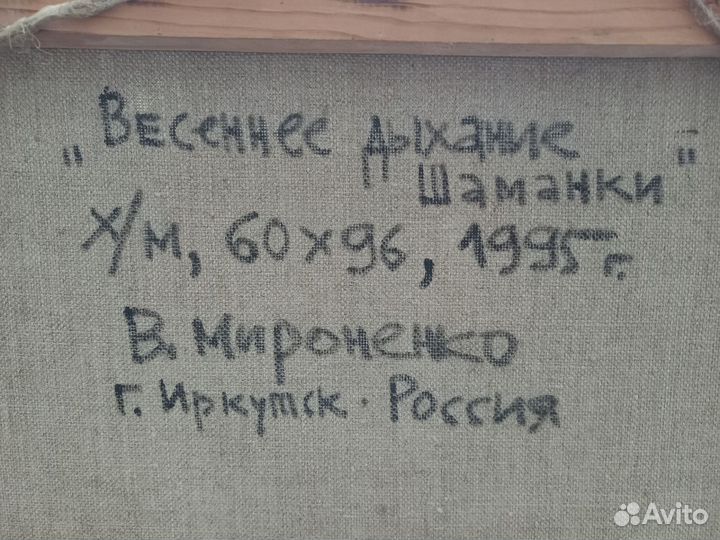 „Весеннее дыхание
Шаманки"
х/м, 60х96, 1995 г.
В. Мироненко
г. Иркутск. Россия
Avito